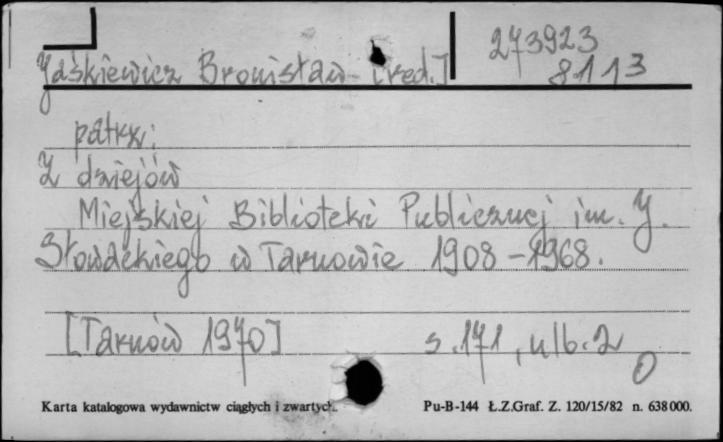 273923
8113
Jaśkiewicz Bronisław [red.]
patrz:
Z dziejów
Miejskiej Biblioteki Publicznej im. J.
Słowackiego w Tarnowie 1908-1968.
[Tarnów 1970] s.171, ulb.2
0
Karta katalogowa wydawnictw ciągłych i zwartych. Pu-B-144 Ł.Z.Graf. Z. 120/15/82 n. 638000.